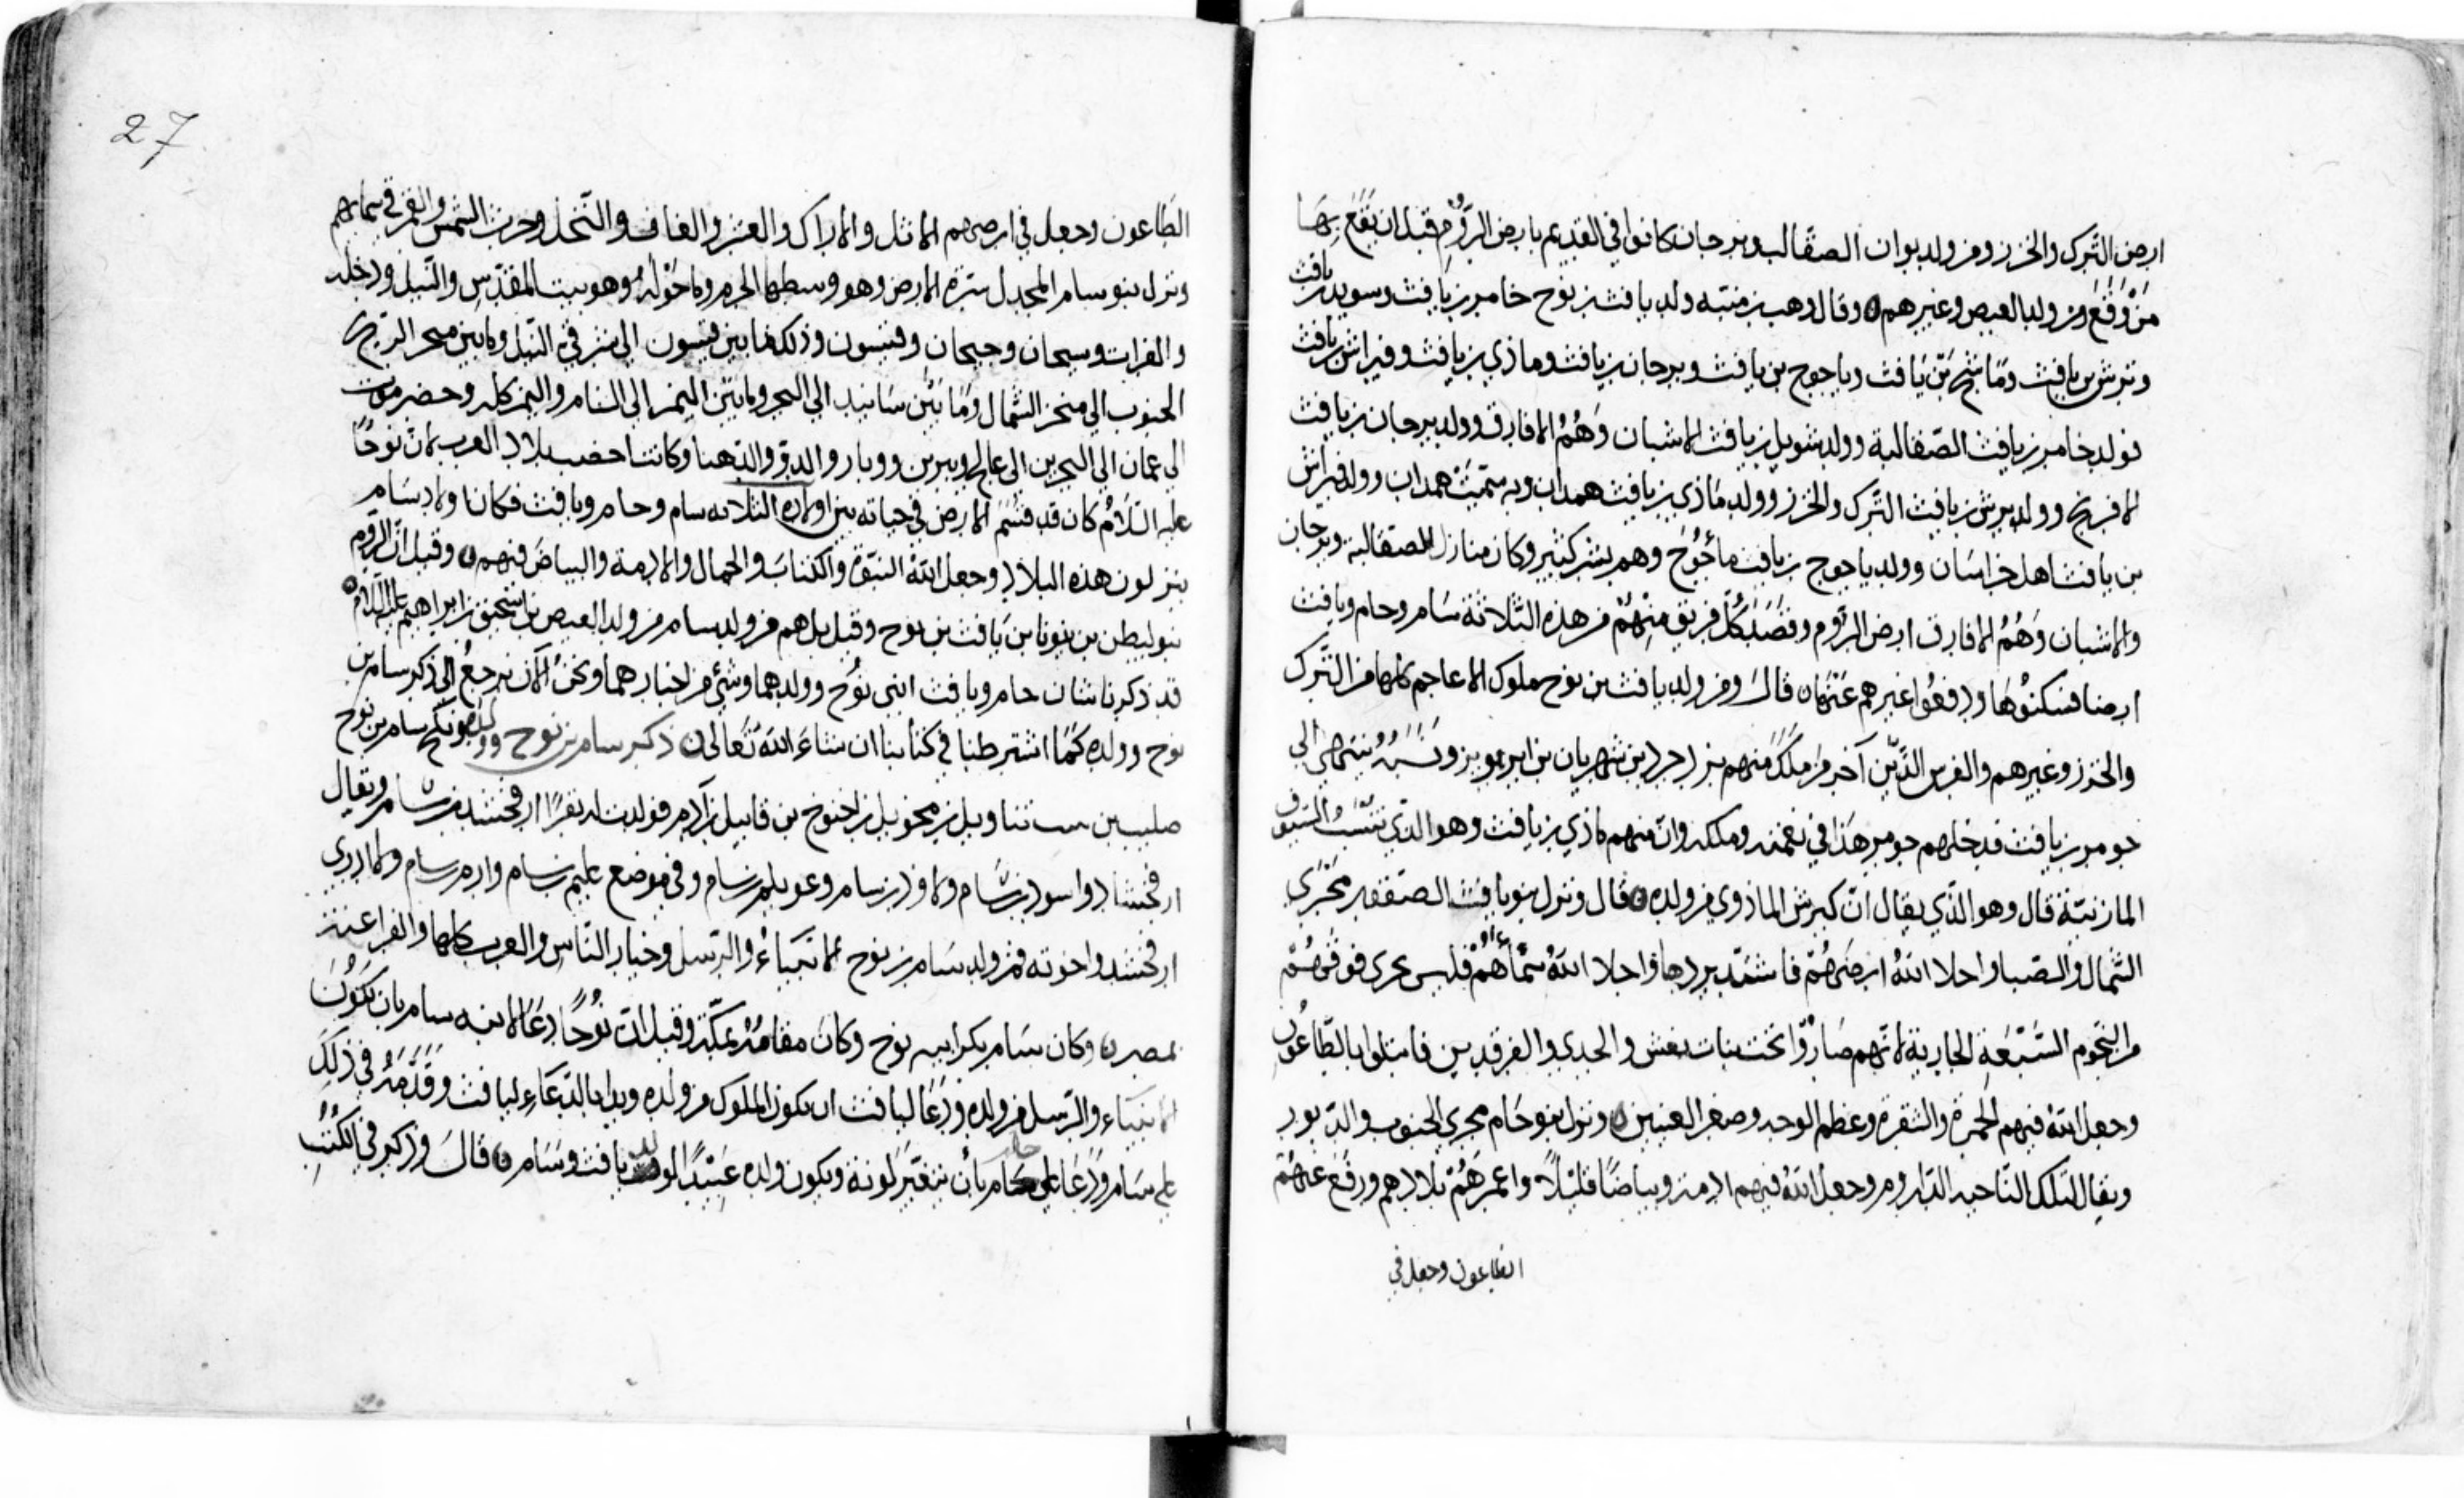 ارض الترك والخزر ومن ولد بوان الصقالب وبرجان كانوا في القديم بارض الرُّوم قبل ان يقع بها
مَنْ وَقَعَ من ولد العيص وغيرهم وقال وهب بن منبّه ولد يافث بن نوح خامر بن يافث وسويل بن يافث
وترش بن يافث وماشج بن يَافث وياجوج بن يافث وبرجان بن يافث وماذي بن يافث وفيراش بن يافث
فولد خامر بن يافث الصّقالبة وولد شويل بن يافث الاشبان وَهُمُ الافارق وولد برجان بن يافث
الافرنج وولد برش بن يافث الترك والخزر وولد مَاذي بن يافث همدان وبه سمّيت همدان وولد فيراش
بن يافث اهل خراسَان وولد ياجوج بن يافث مأجُوج وهم بشر كثير وكان منازل الصقالبة وبرجان
والاشبان وَهُمُ الافارق ارض الرُّوم وقصَدَ كُلّ فريق مِنْهُمْ من هذه الثّلاثة سَام وحام ويافث
ارضا فسكنُوهَا ودفعُوا غيرهم عَنْهَا قالَ ومن ولد يافث بن نوح ملوك الاعاجم كلها من التّرك
والخزر وغيرهم والفرس الذّين آخر مَن مَلَكَ منهم يزدجرد بن شهريان بن ابرويز ونَسَبُهُ ينتهي الى
جومر بن يافث قد خلهم جومر هَذا في نعمته وملكه وانّ منهم ماذي بن يافث وهو الذي تنسَبُ السّيُوف
الماذنيّة قال وهو الذّي يقال انّ كيرش الماذوي من ولده قال ونزل بنو يافث الصقفير مَجْرَى
الشّمال والصّبا واخلا اللهُ ارضَهُمْ فاشتد بردها واخلا اللهُ سماهُمْ فليس يجرى فوقهُمْ
من النّجوم السّبْعَة الجارية لانّهم صَارُوا تحت بنات نعش والجدي والفرقدين فابتلوا بالطّاعُون
وجعل اللهُ فيهم الحمرة والشقرة وعظم الوجه وصغر العينين ونزل بنو حَام مجرى الجنوب والدّبور
ويقال لتلك النّاحيه الدّاروم وجعل اللهُ فيهم ادمة وبياضًا قليْلاً واعمرهُمْ بلادهم ورفع عنهُمْ
الطاعون وجعل في
27
الطّاعون وجعل في ارضهم الاثل والاراك والعشر والغاف والنّخل وجرت الشّمس والقمر في سمايهم
ونزل بنو سام المجدل سرّة الارض وهو وسطها الحرم وما حَوْلهُ وهو بيت المقدّس والنّيل ودخله
والفرات وسيحان وجيحان وفيسون وذلك ما بين فيسون الى شرقي النّيل وما بين منحر الرّيح
الجنوب الى منحر الشّمال وَمَا بَيْن سَاتيد الى البحر وما بين اليمن الى الشام واليمن كله وحضرموت
الى عمان الى البحرين الى عالج ويبرين ووبار والدوّ والدّهنا وكانت اخصب بلاد العرب لانّ نوحًا
عليه السّلامُ كان قد قسَّم الارض في حياته بين اولاده الثلاثه سام وحام ويافث فكان اولاد سَام
ينزلون هذه البلاد وجعل اللهُ النّبوّة والكتابَ والجمال والادمة والبياضَ فيهم وقيل انّ الرّوم
بنو ليطن بن يونان بن يَافث بن نوح وقيل بل هم من ولد سام من ولد العيص بن اسحق بن ابراهيم عليه السّلامُ
قد ذكرنا شان حام ويافث ابني نُوح وولدهما وشئ من اخبارهما ونحْنُ الآن نرجعُ الى ذكر سام بن
نوح وولده كَمَا اشترطنا في كتابنا ان شاءَ اللهُ تَعَالى ذكر سام بن نوح وولده ونكح سام بن نوح
صليب بن تناويل بن محويل بن اخنوخ بن قابيل بن آدم فولدت له نفرًا ارفخشد بن سام ويقال
ارفخشاد واسود بن سام ولاود بن سام وعويلم بن سام وفي موضع عليم بن سام وارم بن سام ولا ادرى
ارفخشد واخوته فمن ولد سَام بن نوح الانبيَاءُ والرّسل وخيار النّاس والعرب كلها والفراعنة
بمصر وكان سَام بكر ابيه نوح وكانَ مقامهُ بمكّة وقيل انّ نُوحًا دَعَا لابنه سام بان تكُونَ
الانبياء والرّسل من ولده وَدَعَا ليافث ان يكون الملوك من ولده وبدا بالدّعَاءِ ليافث وقَدّمَهُ في ذلكَ
على سَام وَدَعَا على حام بأن يتغيّر لونهُ ويكون ولده عَبْيدًا لولد يافث وسَام قالَ وذكر في الكُتُبِ